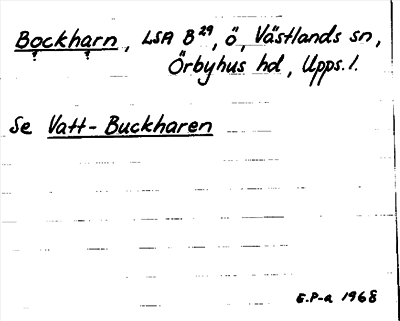 Bockharn, LSA B²⁹, ö, Västlands sn,
Örbyhus hd, Upps. l.
Se Vatt-Buckharen
E.P-a 1968